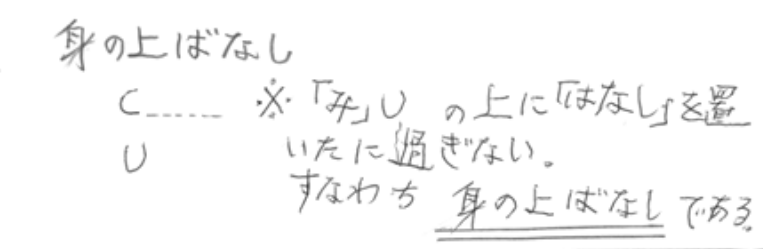 身の上ばなし
C…… ※「み」U の上に「はなし」を置
U いたに過ぎない。
すなわち 身の上ばなしである。